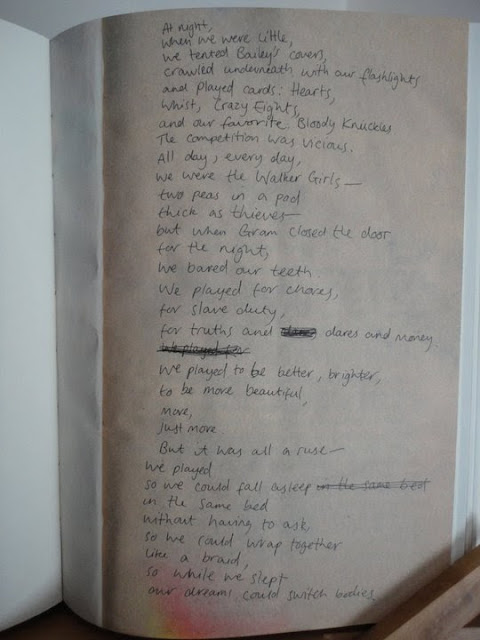 At night,
when we were little,
we tented Bailey's covers,
crawled underneath with our flashlights
and played cards: Hearts,
Whist, Crazy Eights,
and our favorite: Bloody Knuckles
The competition was vicious.
All day, every day,
we were the Walker Girls—
two peas in a pod
thick as thieves—
but when Gram closed the door
for the night,
we bared our teeth.
We played for chores,
for slave duty,
for truths and dares and money.
We played for
We played to be better, brighter,
to be more beautiful,
more,
just more.
But it was all a ruse—
we played
so we could fall asleep in the same bed
in the same bed
without having to ask
so we could wrap together
like a braid,
so while we slept
our dreams could switch bodies